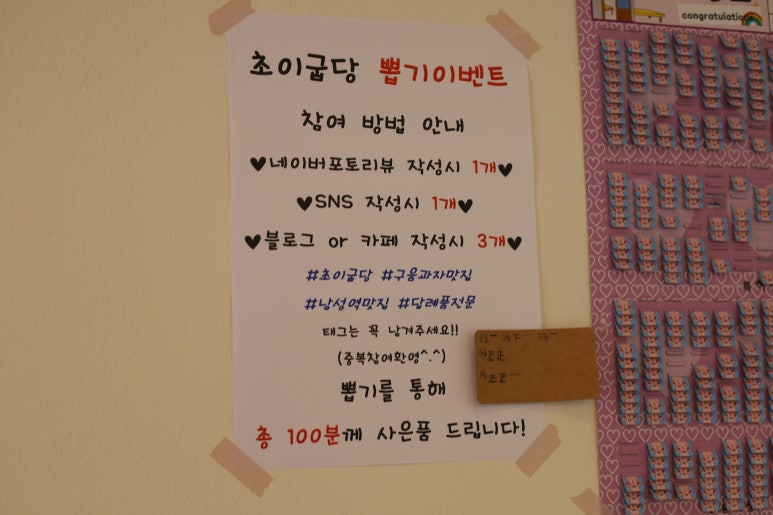 초이굽당 뽑기이벤트
참여 방법 안내
♥네이버포토리뷰 작성시 1개♥
♥SNS 작성시 1개♥
♥블로그 or 카페 작성시 3개♥
#초이굽당 #구움과자맛집
#남성역맛집 #답례품전문
태그는 꼭 남겨주세요!!
(중복참여환영^.^)
뽑기를 통해
총 100분께 사은품 드립니다!
congratulations